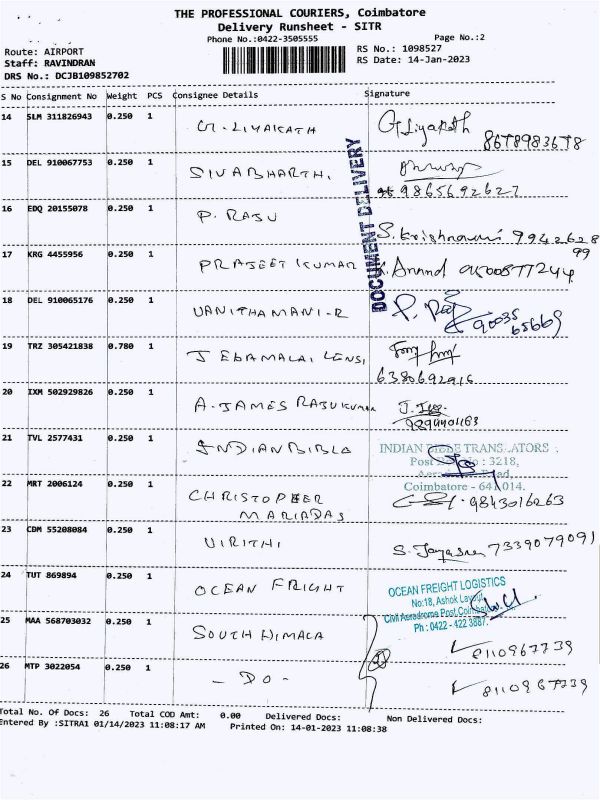 THE PROFESSIONAL COURIERS, Coimbatore
Delivery Runsheet - SITR
Phone No.:0422-3505555 Page No.:2
Route: AIRPORT RS No.: 1098527
Staff: RAVINDRAN RS Date: 14-Jan-2023
DRS No.: DCJB109852702
S No Consignment No Weight PCS Consignee Details Signature
14 SLM 311826943 0.250 1 G. LIYAKATH G Liyakath
8678983678
15 DEL 910067753 0.250 1 SIVABHARTHI
9865692627
DOCUMENT DELIVERY
16 EDQ 20155078 0.250 1 P. RAJU S. Krishnaveni 9942628
99
17 KRG 4455956 0.250 1 PRAJEET KUMAR Anand 9500877244
18 DEL 910065176 0.250 1 VANITHAMANI-R
90035
65669
19 TRZ 305421838 0.780 1 J EBAMALAI LENSI
6380692916
20 IXM 502929826 0.250 1 A. JAMES RAJUKUMAR
21 TVL 2577431 0.250 1 INDIANBIBLE INDIAN BIBLE TRANSLATORS
Post Box No : 3218,
Road,
Coimbatore - 641 014.
22 MRT 2006124 0.250 1 CHRISTOPEER 9843016263
MARIADAS
23 CDM 55208084 0.250 1 VIRITHI S. Jayasree 7339079091
24 TUT 869894 0.250 1 OCEAN FRIGHT OCEAN FREIGHT LOGISTICS
No:18, Ashok Layout,
Civil Aerodrome Post, Coimbatore
Ph : 0422 - 422 3887.
25 MAA 568703032 0.250 1 SOUTH HIMALA 8110967739
26 MTP 3022054 0.250 1 - DO - 8110967739
Total No. Of Docs: 26 Total COD Amt: 0.00 Delivered Docs: Non Delivered Docs:
Entered By :SITRA1 01/14/2023 11:08:17 AM Printed On: 14-01-2023 11:08:38